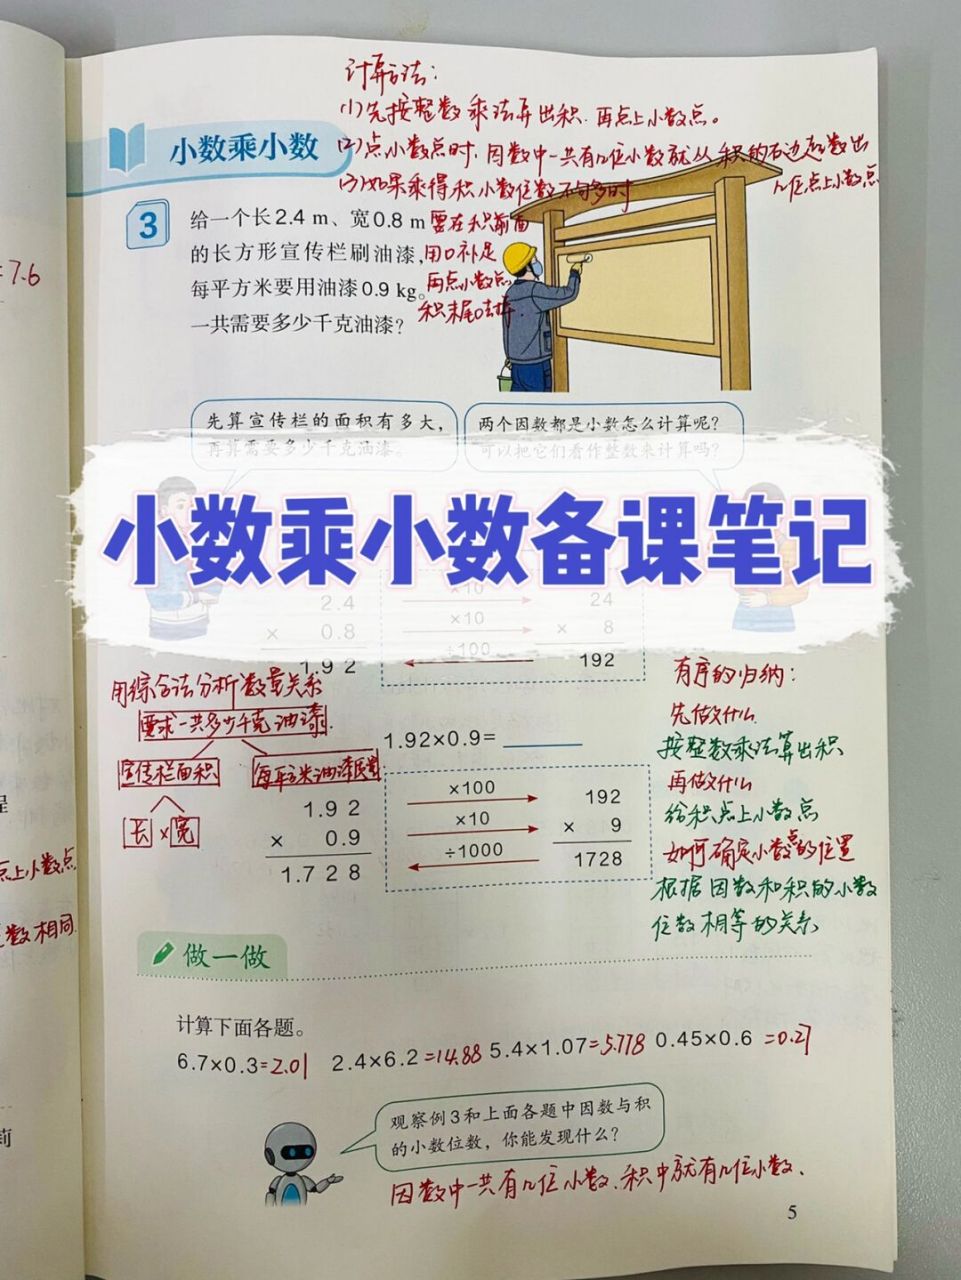 计算方法：
(1)先按整数乘法算出积，再点上小数点。
(2)点小数点时，因数中一共有几位小数就从积的右边起数出
几位点上小数点
(3)如果乘得积小数位数不够多时
要在积前面
用0补足
再点小数点
积末尾0去掉.
小数乘小数
3
给一个长2.4 m、宽0.8 m
的长方形宣传栏刷油漆，
每平方米要用油漆0.9 kg。
一共需要多少千克油漆？
=7.6
先算宣传栏的面积有多大，
再算需要多少千克油漆。
两个因数都是小数怎么计算呢？
可以把它们看作整数来计算吗？
小数乘小数备课笔记
2.4
× 0.8
1.92
×10
×10
÷100
24
× 8
192
用综合法分析数量关系
要求一共多少千克油漆
宣传栏面积
每平方米油漆质量
长×宽
1.92×0.9=
1.92
× 0.9
1.728
×100
×10
÷1000
192
× 9
1728
有序的归纳：
先做什么
按整数乘法算出积
再做什么
给积点上小数点
如何确定小数点的位置
根据因数和积的小数
位数相等的关系
点上小数点
数相同
做一做
计算下面各题。
6.7×0.3=2.01 2.4×6.2=14.88 5.4×1.07=5.778 0.45×0.6=0.27
观察例3和上面各题中因数与积
的小数位数，你能发现什么？
因数中一共有几位小数，积中就有几位小数、
莉
5